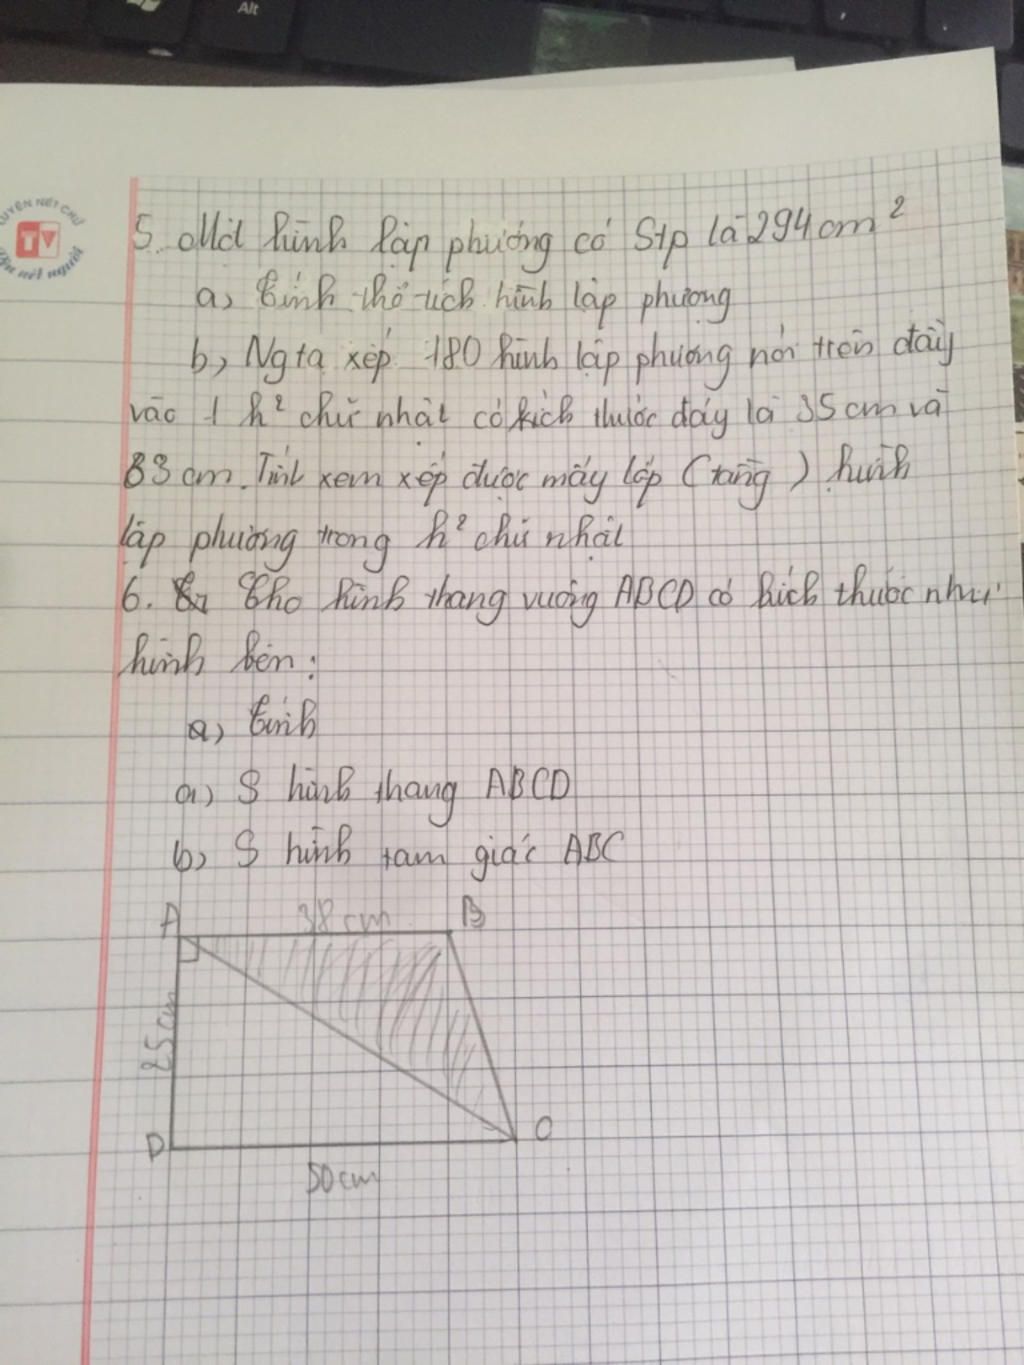 Alt
LUYỆN NÉT CHỮ
TV
nết người
5. Một hình lập phương có Stp là 294cm²
a, Tính thể tích hình lập phương
b, Ng ta xếp 180 hình lập phương nói trên đây
vào 1 h² chữ nhật có kích thước đáy là 35cm và
63cm. Tính xem xếp được mấy lớp (tầng) hình
lập phương trong h² chữ nhật
6. Cho hình thang vuông ABCD có kích thước như
hình bên:
a, Tính
a) S hình thang ABCD
b, S hình tam giác ABC
A 38cm B
25cm
D C
50cm